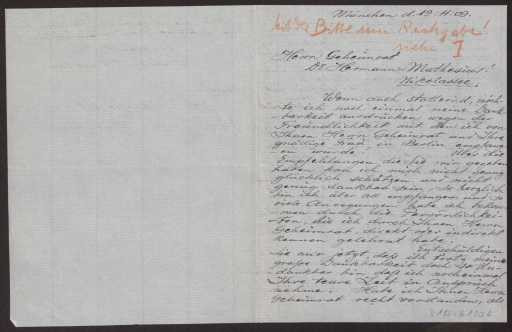 München d. 12.11.09.
Bitte um Rückgabe!
siehe I
Herrn Geheimrat
Dr. Hermann Muthesius!
Nikolassee.
Wenn auch stotternd, möch-
te ich noch einmal meine Dank-
barkeit ausdrücken wegen der
Freundlichkeit mit der ich von
Ihnen Herrn Geheimrat und Ihre
gnädige Frau in Berlin empfan-
gen wurde. Über die
Empfehlungen die Sie mir gegeben
haben kann ich mich nicht genug
glücklich schätzen und nicht
genug dankbar sein. So herzlich
bin ich über all empfangen und so
viele Anregungen habe ich bekom-
men durch die Persönlichkei-
ten, die ich durch Ihnen Herrn
Geheimrat direkt oder indirekt
kennen gelernt habe.
Entschuldigen
Sie mir jetzt, daß ich trotz meine
große Dankbarkeit und so un-
dankbar bin, daß ich nocheinmal
Ihre teure Zeit in Anspruch
nehme. Habe ich Ihnen Herrn
Geheimrat recht verstanden, als